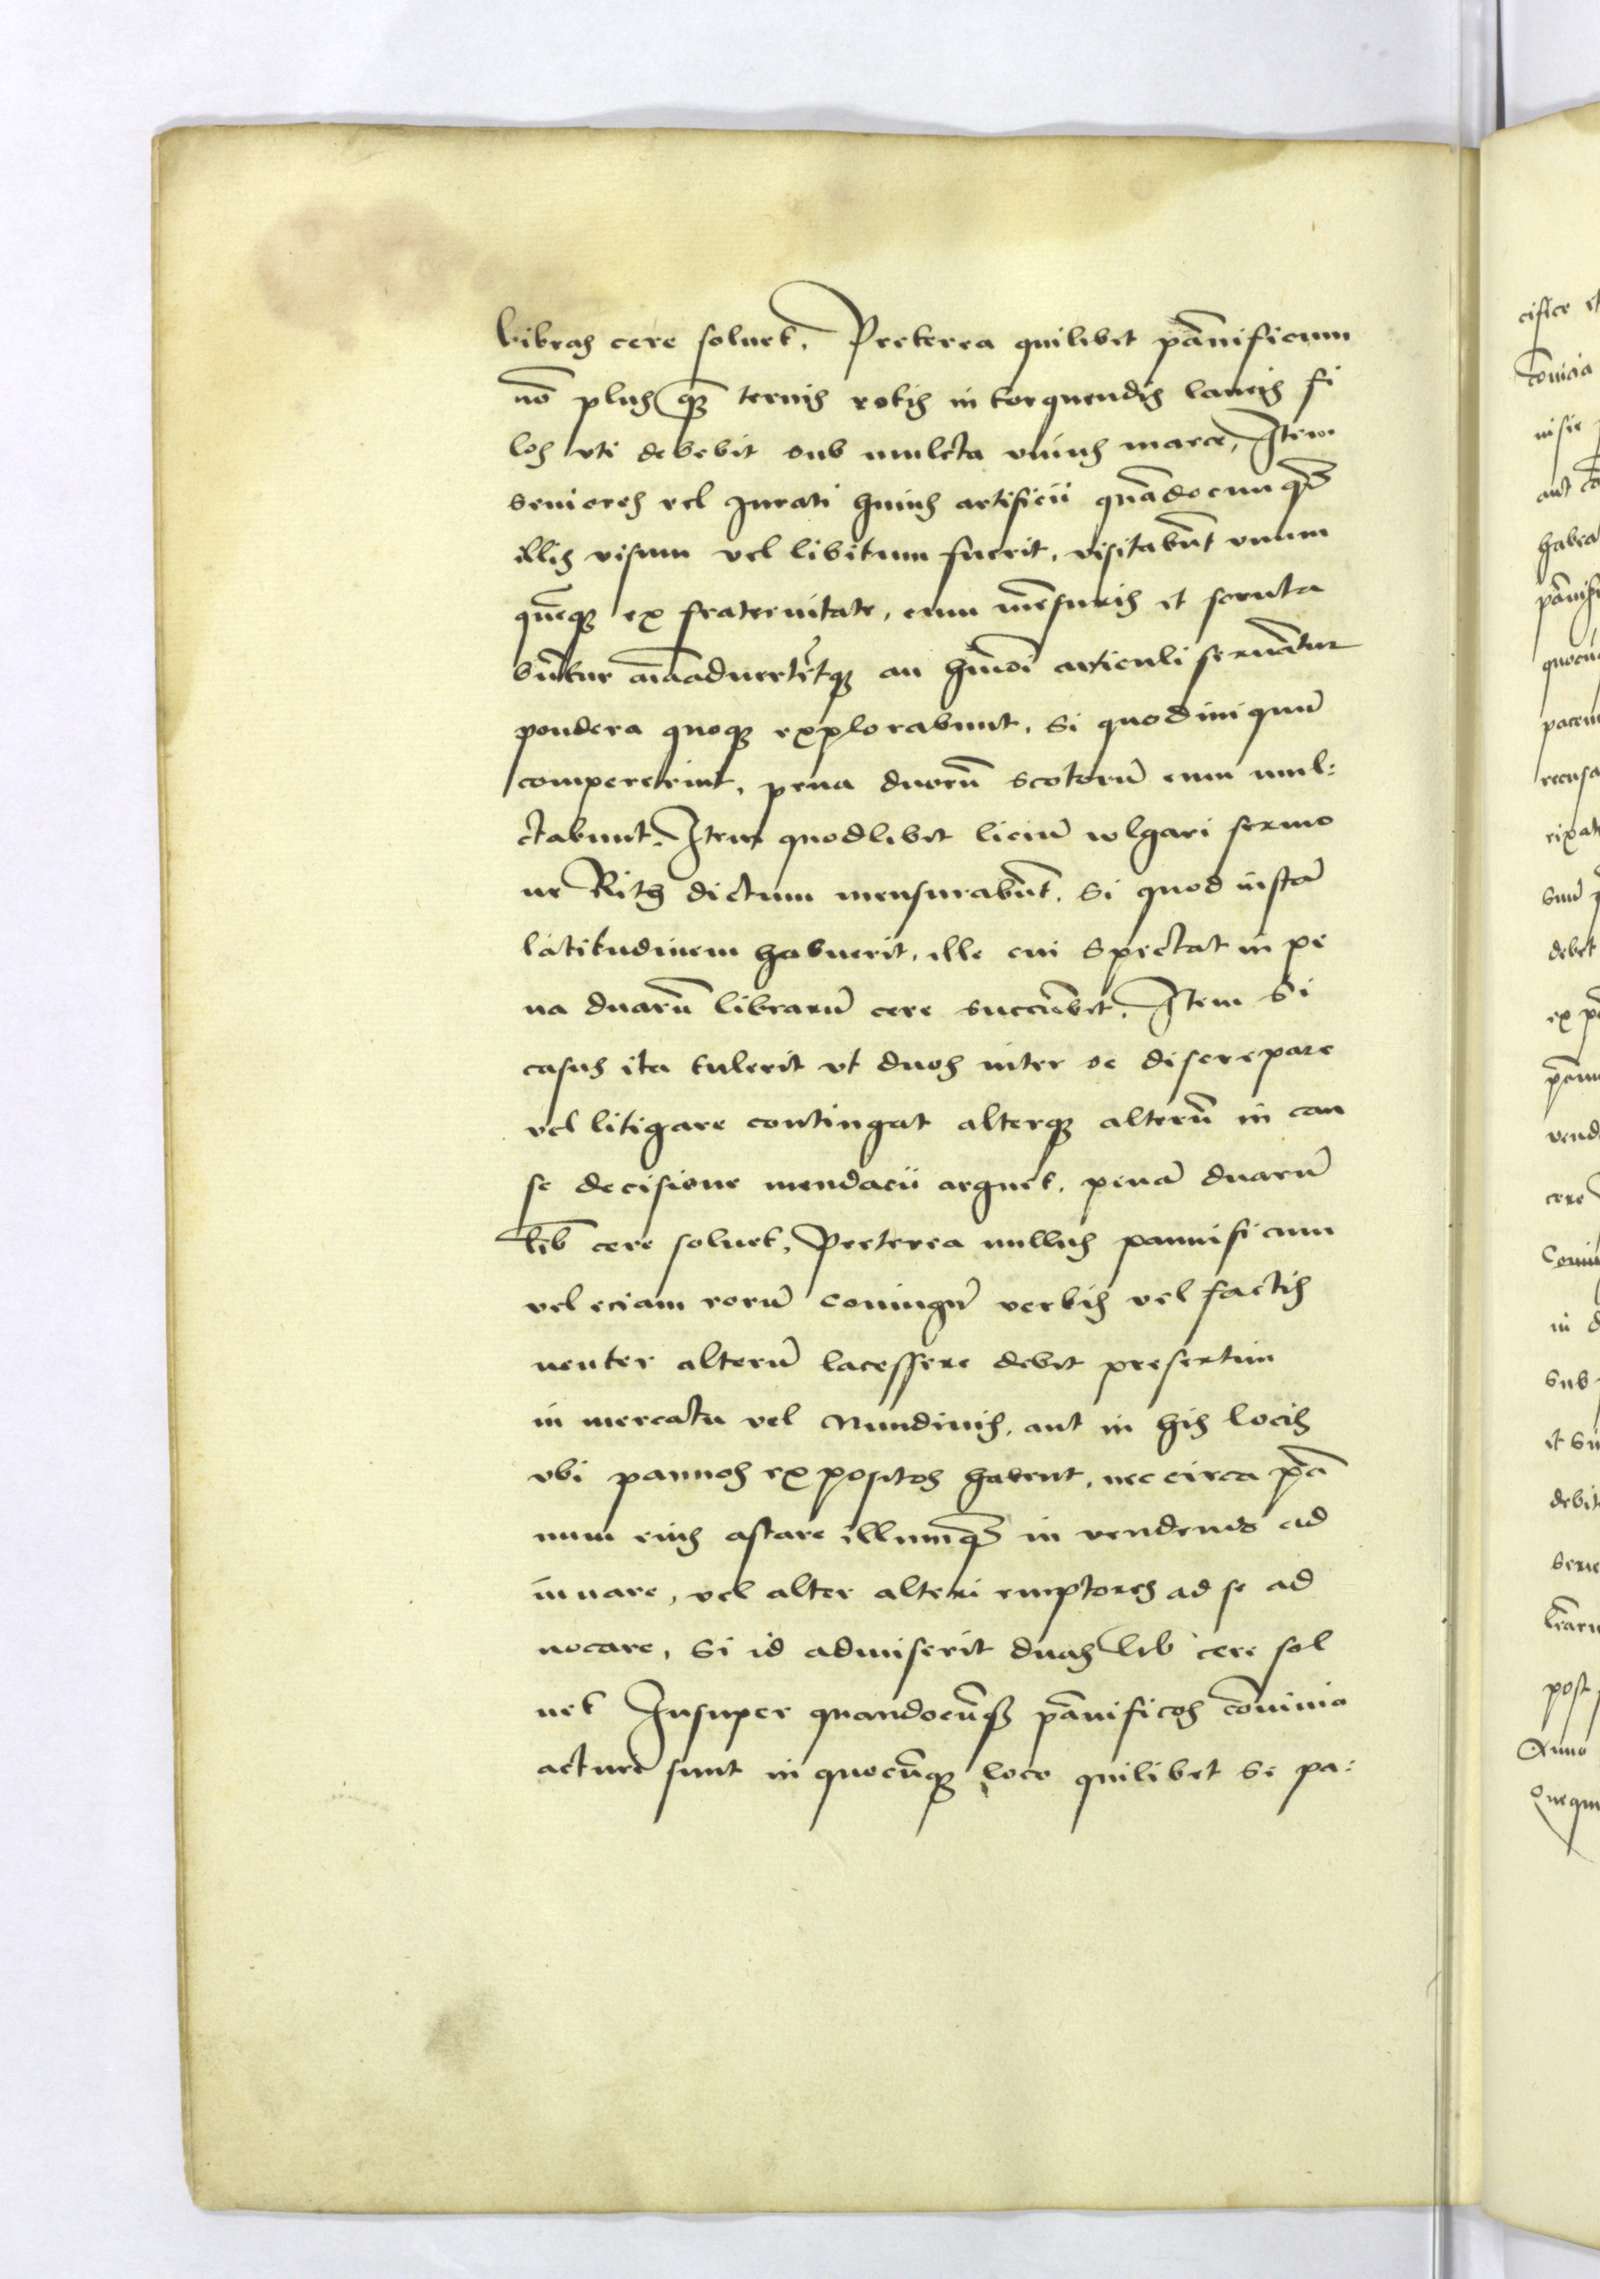 libras cere soluet. Preterea quilibet pānificum
nō plus qͣ ternis rotis in torquendis laneis fi
los vti debebit sub mulcta vnius marce, Item
seniores vel Jurati huius artificii quādocunqꝫ
illis visum vel libitum fuerit, visitabūt vnum
quēqꝫ ex fraternitate, cum mēsuris et scruta
būtur aīaaduertētqꝫ an hmōi articuli seruātur
pondera quoqꝫ explorabunt, si quod iniquū
compererint, pena duorū scotorū eum mul:
ctabunt. Item quodlibet liciū wlgari sermo
ne Ritz dictum mensurabūt. Si quod iustā
latitudinem habuerit, ille cui spectat in pe
na duarū librarū cere succūbet. Item Si
casus ita tulerit vt duos inter se discrepare
vel litigare contingat alterqꝫ alterū in cau
se decisione mendacii arguet, penā duarū
lib cere soluet, Preterea nullus pannificum
vel eciam eorū coniugū verbis vel factis
neuter alterū lacessere debet presertim
in mercatu vel Nundinis, aut in his locis
vbi pannos expositos habent, nec circa pā
num eius astare illumqꝫ in vendendo ad
iuuare, vel alter alteri emptores ad se ad
uocare, Si id admiserit duas lib cere sol
uet Insuper quandocūqꝫ pānificos cōuiuia
acturi sunt in quocūqꝫ loco quilibet se pa:
cifice et
cōuicia
nisie
aut
habea
pānifi
quocū
pacem
recusa
rixat
suū
debet
ex
pānn
vend
cere
Coniu
in
sub
et
debit
serie
post
Anno